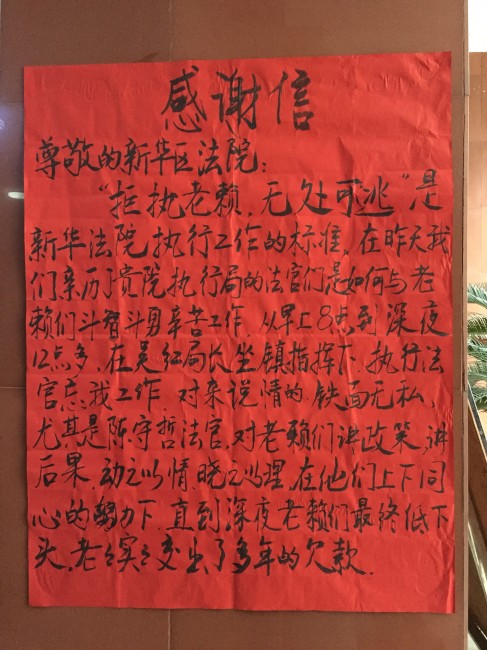 感谢信
尊敬的新华区法院：
“拒执老赖，无处可逃”是
新华法院执行工作的标准，在昨天我
们亲历了贵院执行局的法官们是如何与老
赖们斗智斗勇辛苦工作，从早上8点到深夜
12点多，在吴红局长坐镇指挥下，执行法
官忘我工作，对来说情的铁面无私，
尤其是陈守哲法官，对老赖们讲政策，讲
后果，动之以情，晓之以理，在他们上下同
心的努力下，直到深夜老赖们最终低下
头，老老实实交出了多年的欠款．